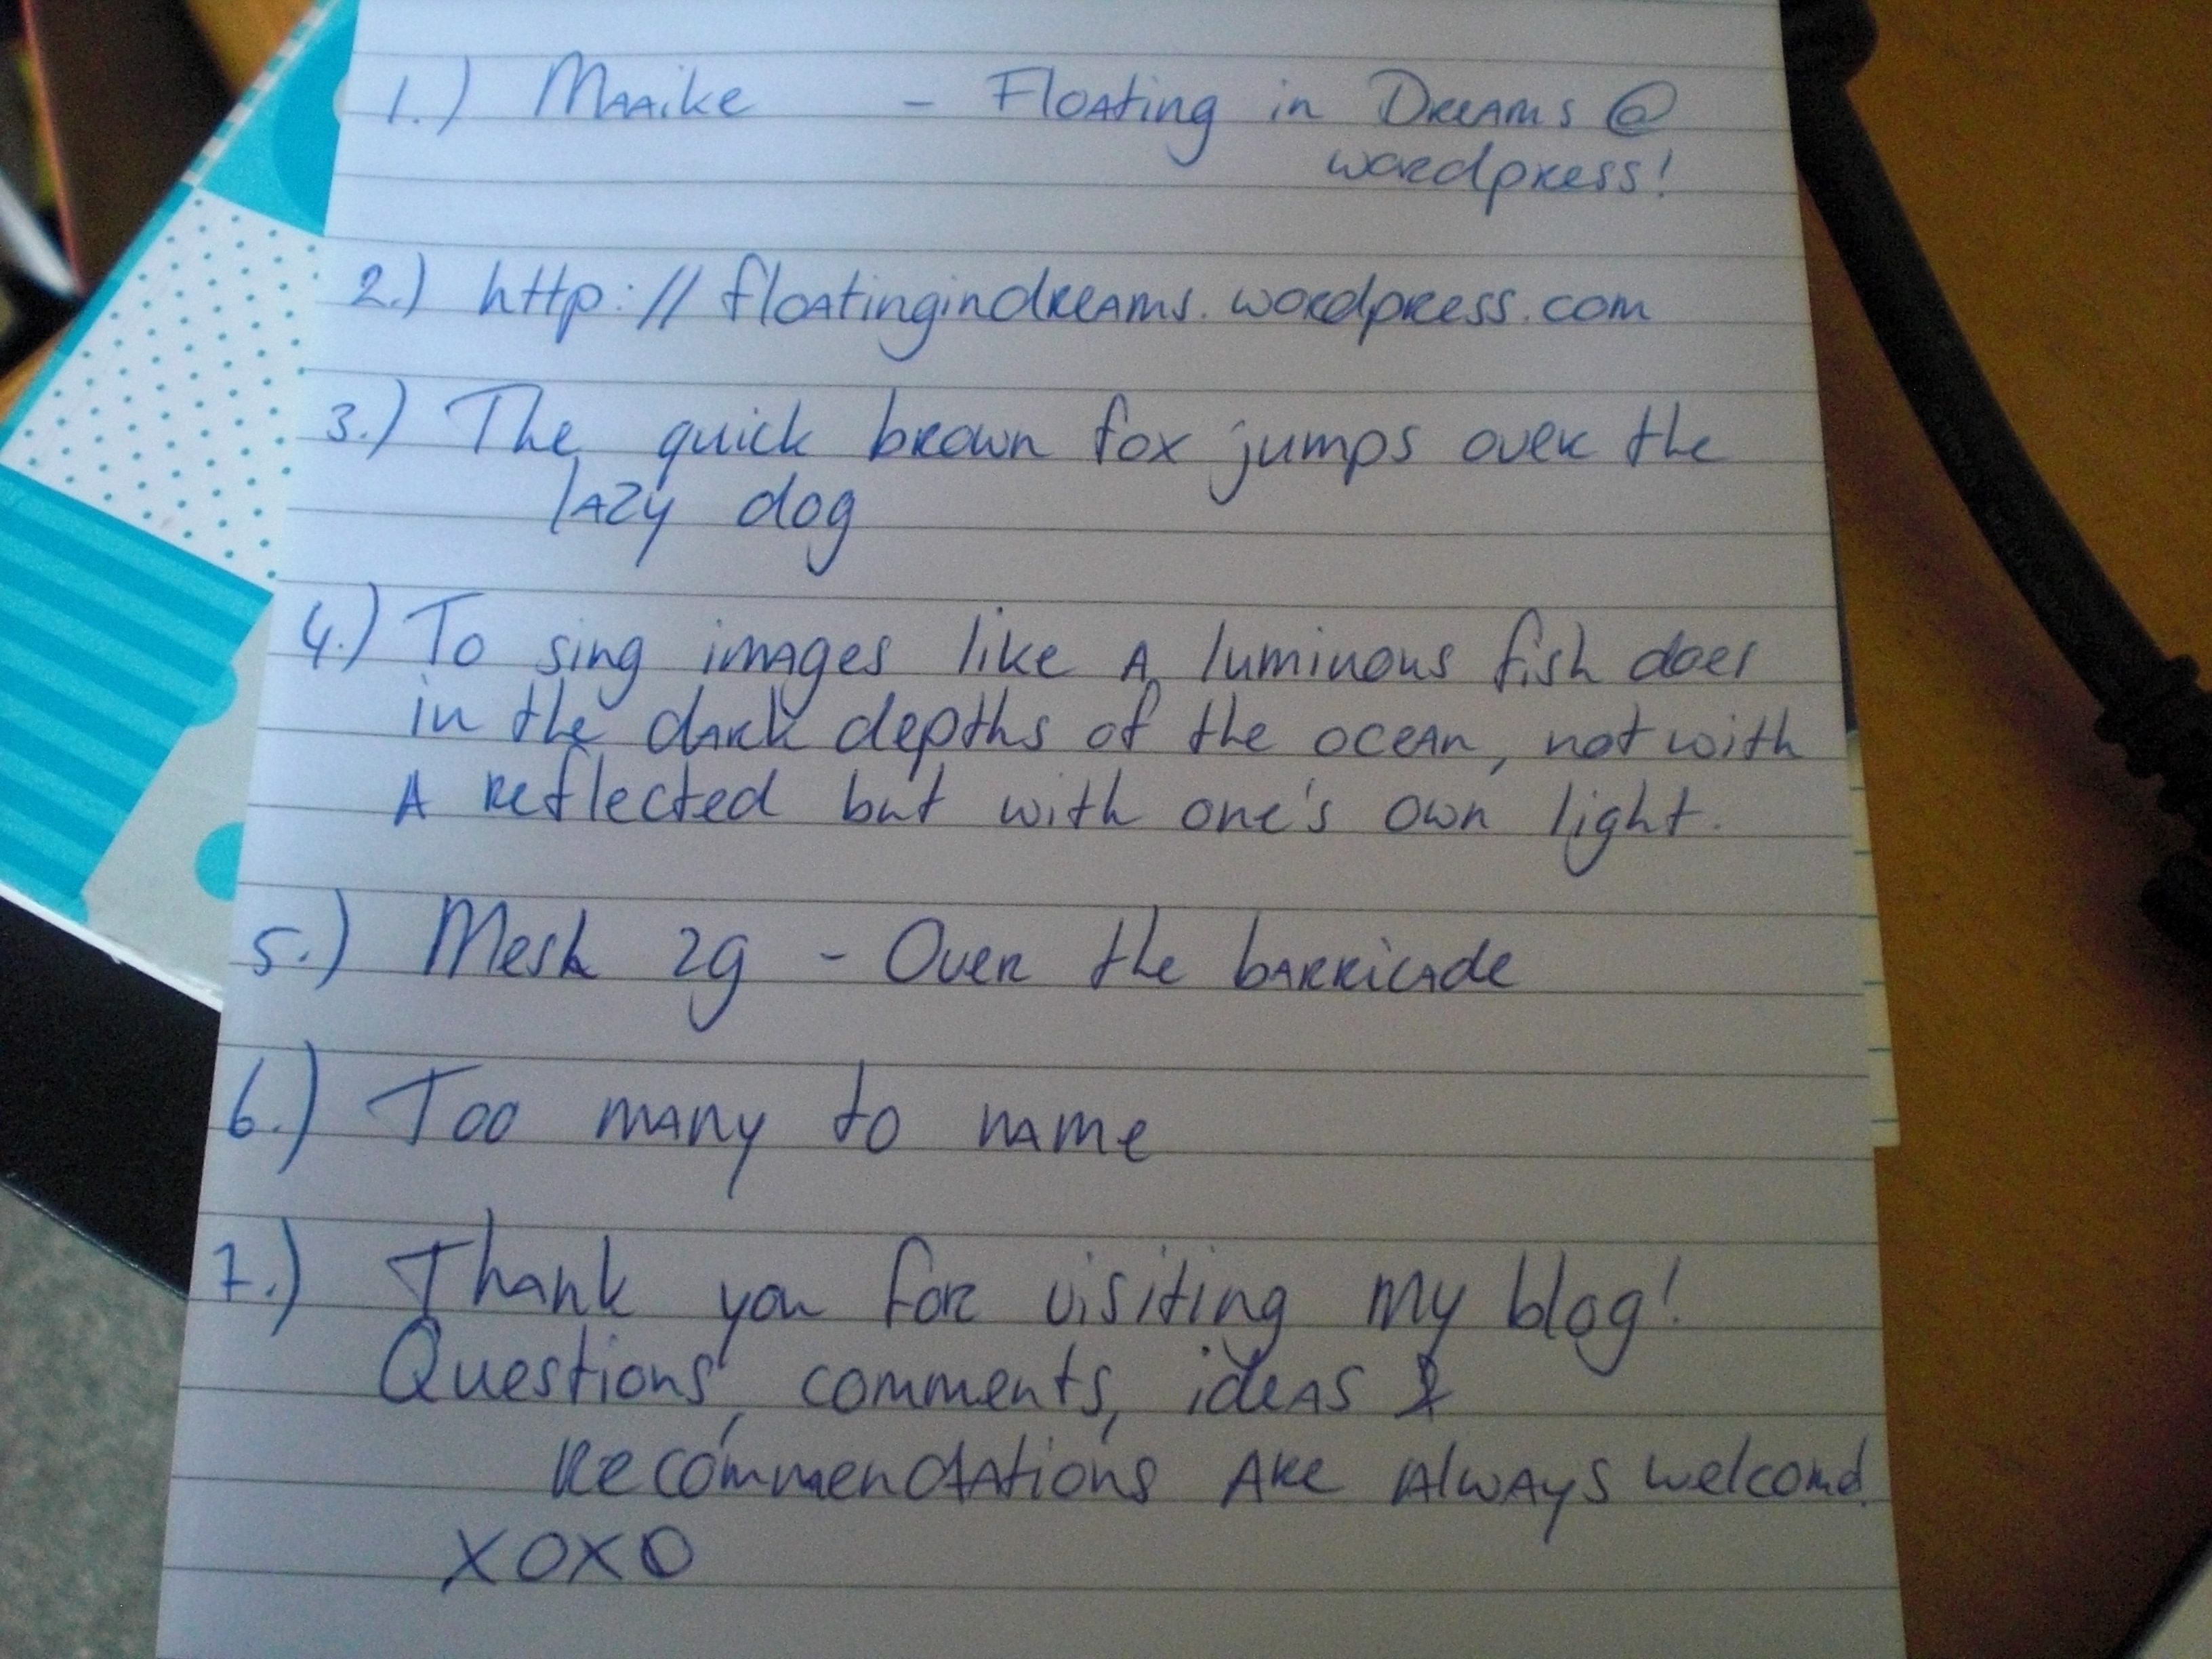 1.) Maaike - Floating in Dreams @
wordpress!
2.) http://floatingindreams.wordpress.com
3.) The quick brown fox jumps over the
lazy dog
4.) To sing images like a luminous fish does
in the dark depths of the ocean, not with
a reflected but with one's own light.
5.) Mesh 2g - Over the barricade
6.) Too many to name
7.) Thank you for visiting my blog!
Questions, comments, ideas &
recommendations are always welcomd.
XOXO